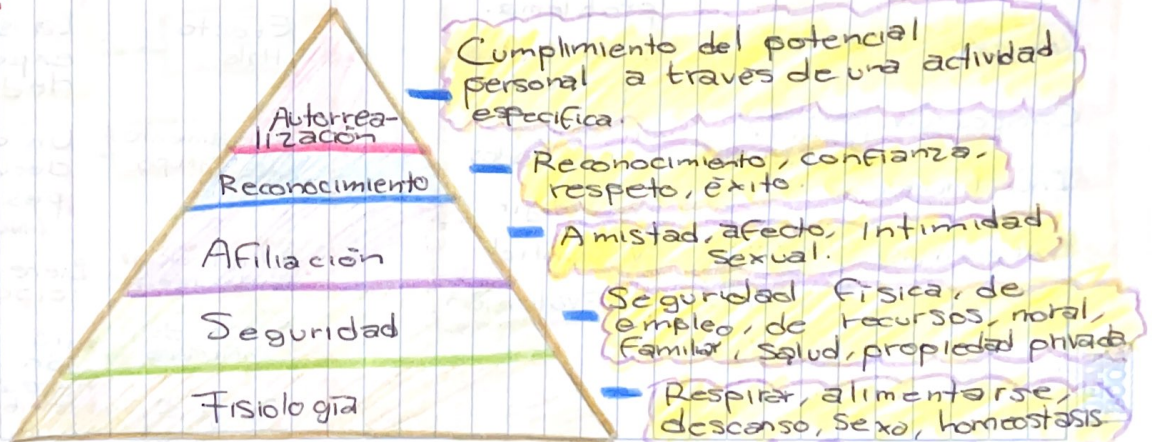 Autorrea-
lización
Reconocimiento
Afiliación
Seguridad
Fisiología
Cumplimiento del potencial
personal a través de una actividad
específica.
Reconocimiento, confianza,
respeto, éxito.
Amistad, afecto, intimidad
sexual.
Seguridad física, de
empleo, de recursos, moral,
familiar, salud, propiedad privada
Respirar, alimentarse,
descanso, sexo, homeostasis.